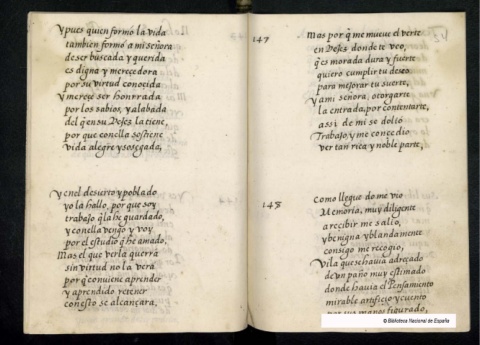 Y pues quien formó la vida
tambien formó a mi señora
de ser buscada y querida
es digna y merecedora
por su virtud conocida
Y merece ser honrrada
por los sabios, y alabada
del q̃ en su Vejez la tiene,
por que con ella sostiene
vida alegre y sosegada,
Y en el desierto y poblado
yo la hallo, por que soy
trabajo q̃ la he guardado,
y con ella vengo y voy
por el estudio q̃ he amado,
Mas el que verla querra
sin virtud no la vera
por q̃ conviene aprender
y aprendido retener
con esto se alcançara,
147
Mas por q̃ me mueve el verte
en Vejez donde te veo,
q̃ es morada dura y fuerte
quiero cumplir tu deseo
para mejorar tu suerte,
Y a mi señora, otorgarte
la entrada, por contentarte,
assi de mi se dolio
Trabajo, y me concedio
ver tan rica y noble parte,
148
Como llegue do me vio
Memoria, muy diligente
a recibir me salio,
y benigna y blandamente
consigo me recogio,
Vi la que se havia adreçado
de un paño muy estimado
donde havia el Pensamiento
mirable artificio y cuento
por sus manos figurado,
© Biblioteca Nacional de España